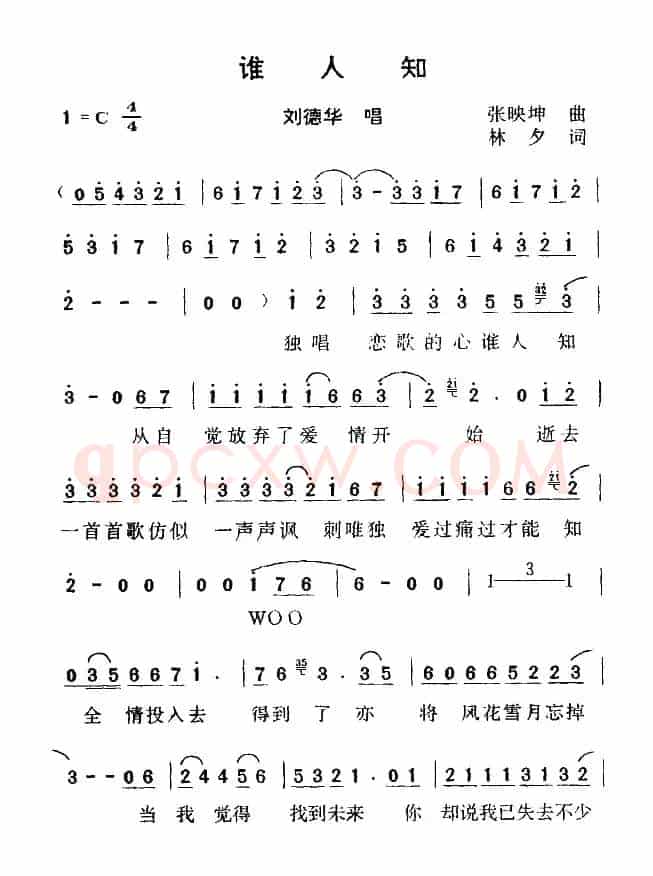 谁 人 知
1 = C 4/4 刘德华 唱 张映坤 曲
林 夕 词
( 0 5 4 3 2 1 | 6 1 7 1 2 3 | 3 - 3 3 1 7 | 6 1 7 1 2
5 3 1 7 | 6 1 7 1 2 | 3 2 1 5 | 6 1 4 3 2 1 |
2 - - - | 0 0 ) 1 2 | 3 3 3 3 5 5 3 |
独唱 恋歌的心谁人 知
3 - 0 6 7 | 1 1 1 1 1 6 6 3 | 2 2 . 0 1 2 |
从自 觉放弃了爱 情开 始 逝去
3 3 3 3 3 2 1 | 3 3 3 3 2 1 6 7 | 1 1 1 1 6 6 2 |
一首首歌仿似 一声声讽 刺唯独 爱过痛过才能 知
2 - 0 0 | 0 0 1 7 6 | 6 - 0 0 | 1 3 1 |
WOO
0 3 5 6 6 7 1 . | 7 6 3 . 3 5 | 6 0 6 6 5 2 2 3 |
全 情投入去 得到 了 亦 将 风花雪月忘掉
3 - - 0 6 | 2 4 4 5 6 | 5 3 2 1 . 0 1 | 2 1 1 1 3 1 3 2 |
当 我 觉得 找到未来 你 却说我已失去不少
qpcxw.COM